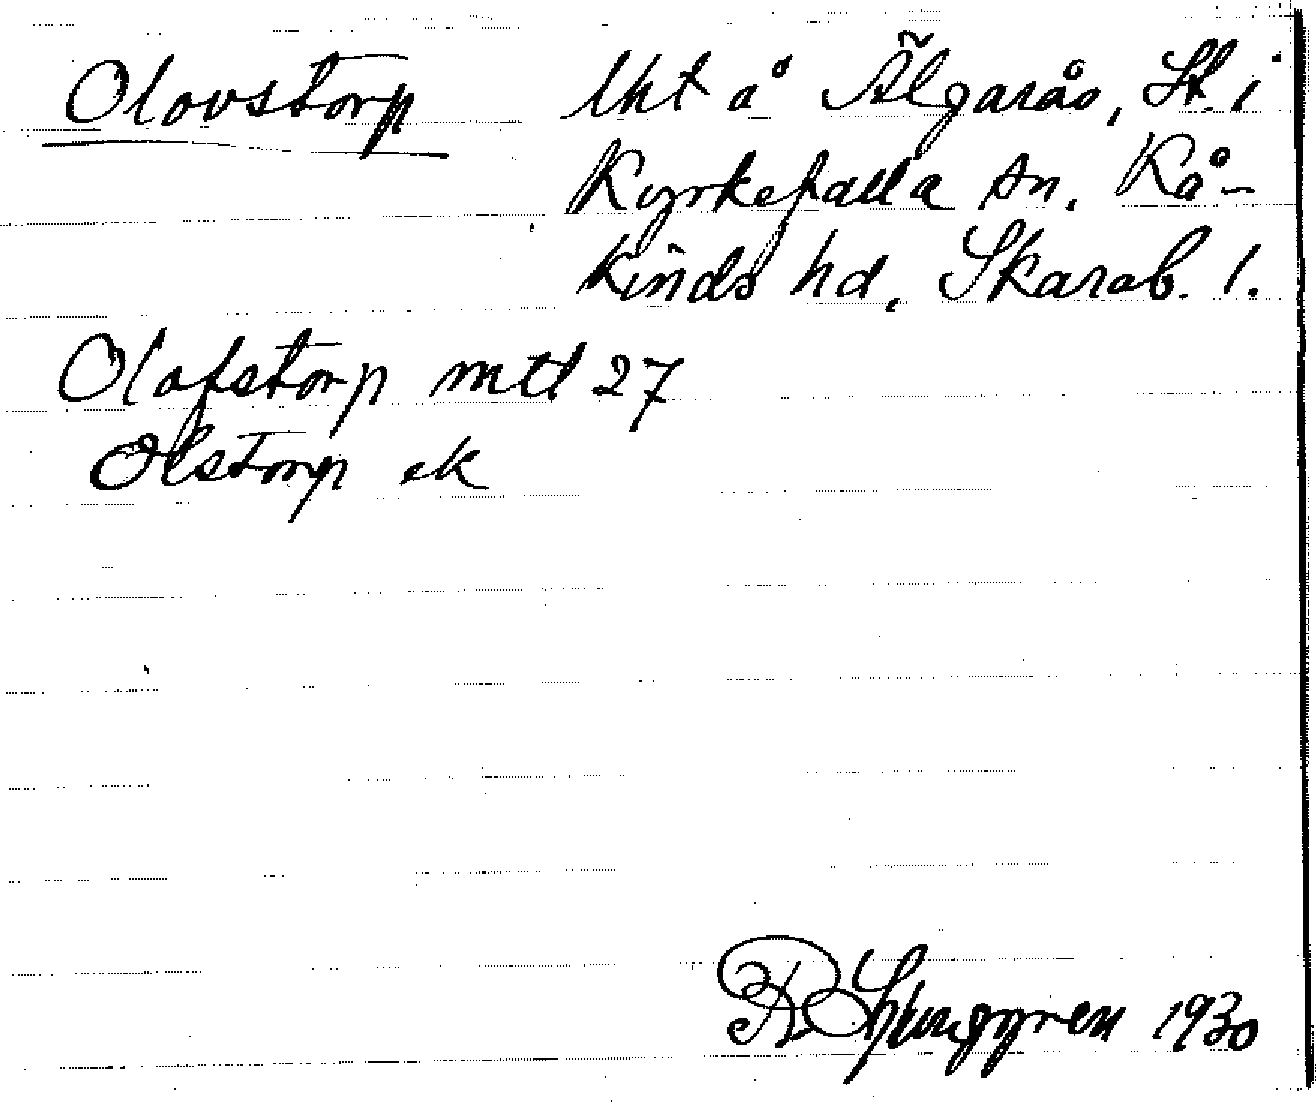 Olovstorp lht å Älgarås, St. i
Kyrkefalla sn. Kå-
kinds hd, Skarab. l.
Olofstorp mtl 27
Olstorp ek
R Ljunggren 1930